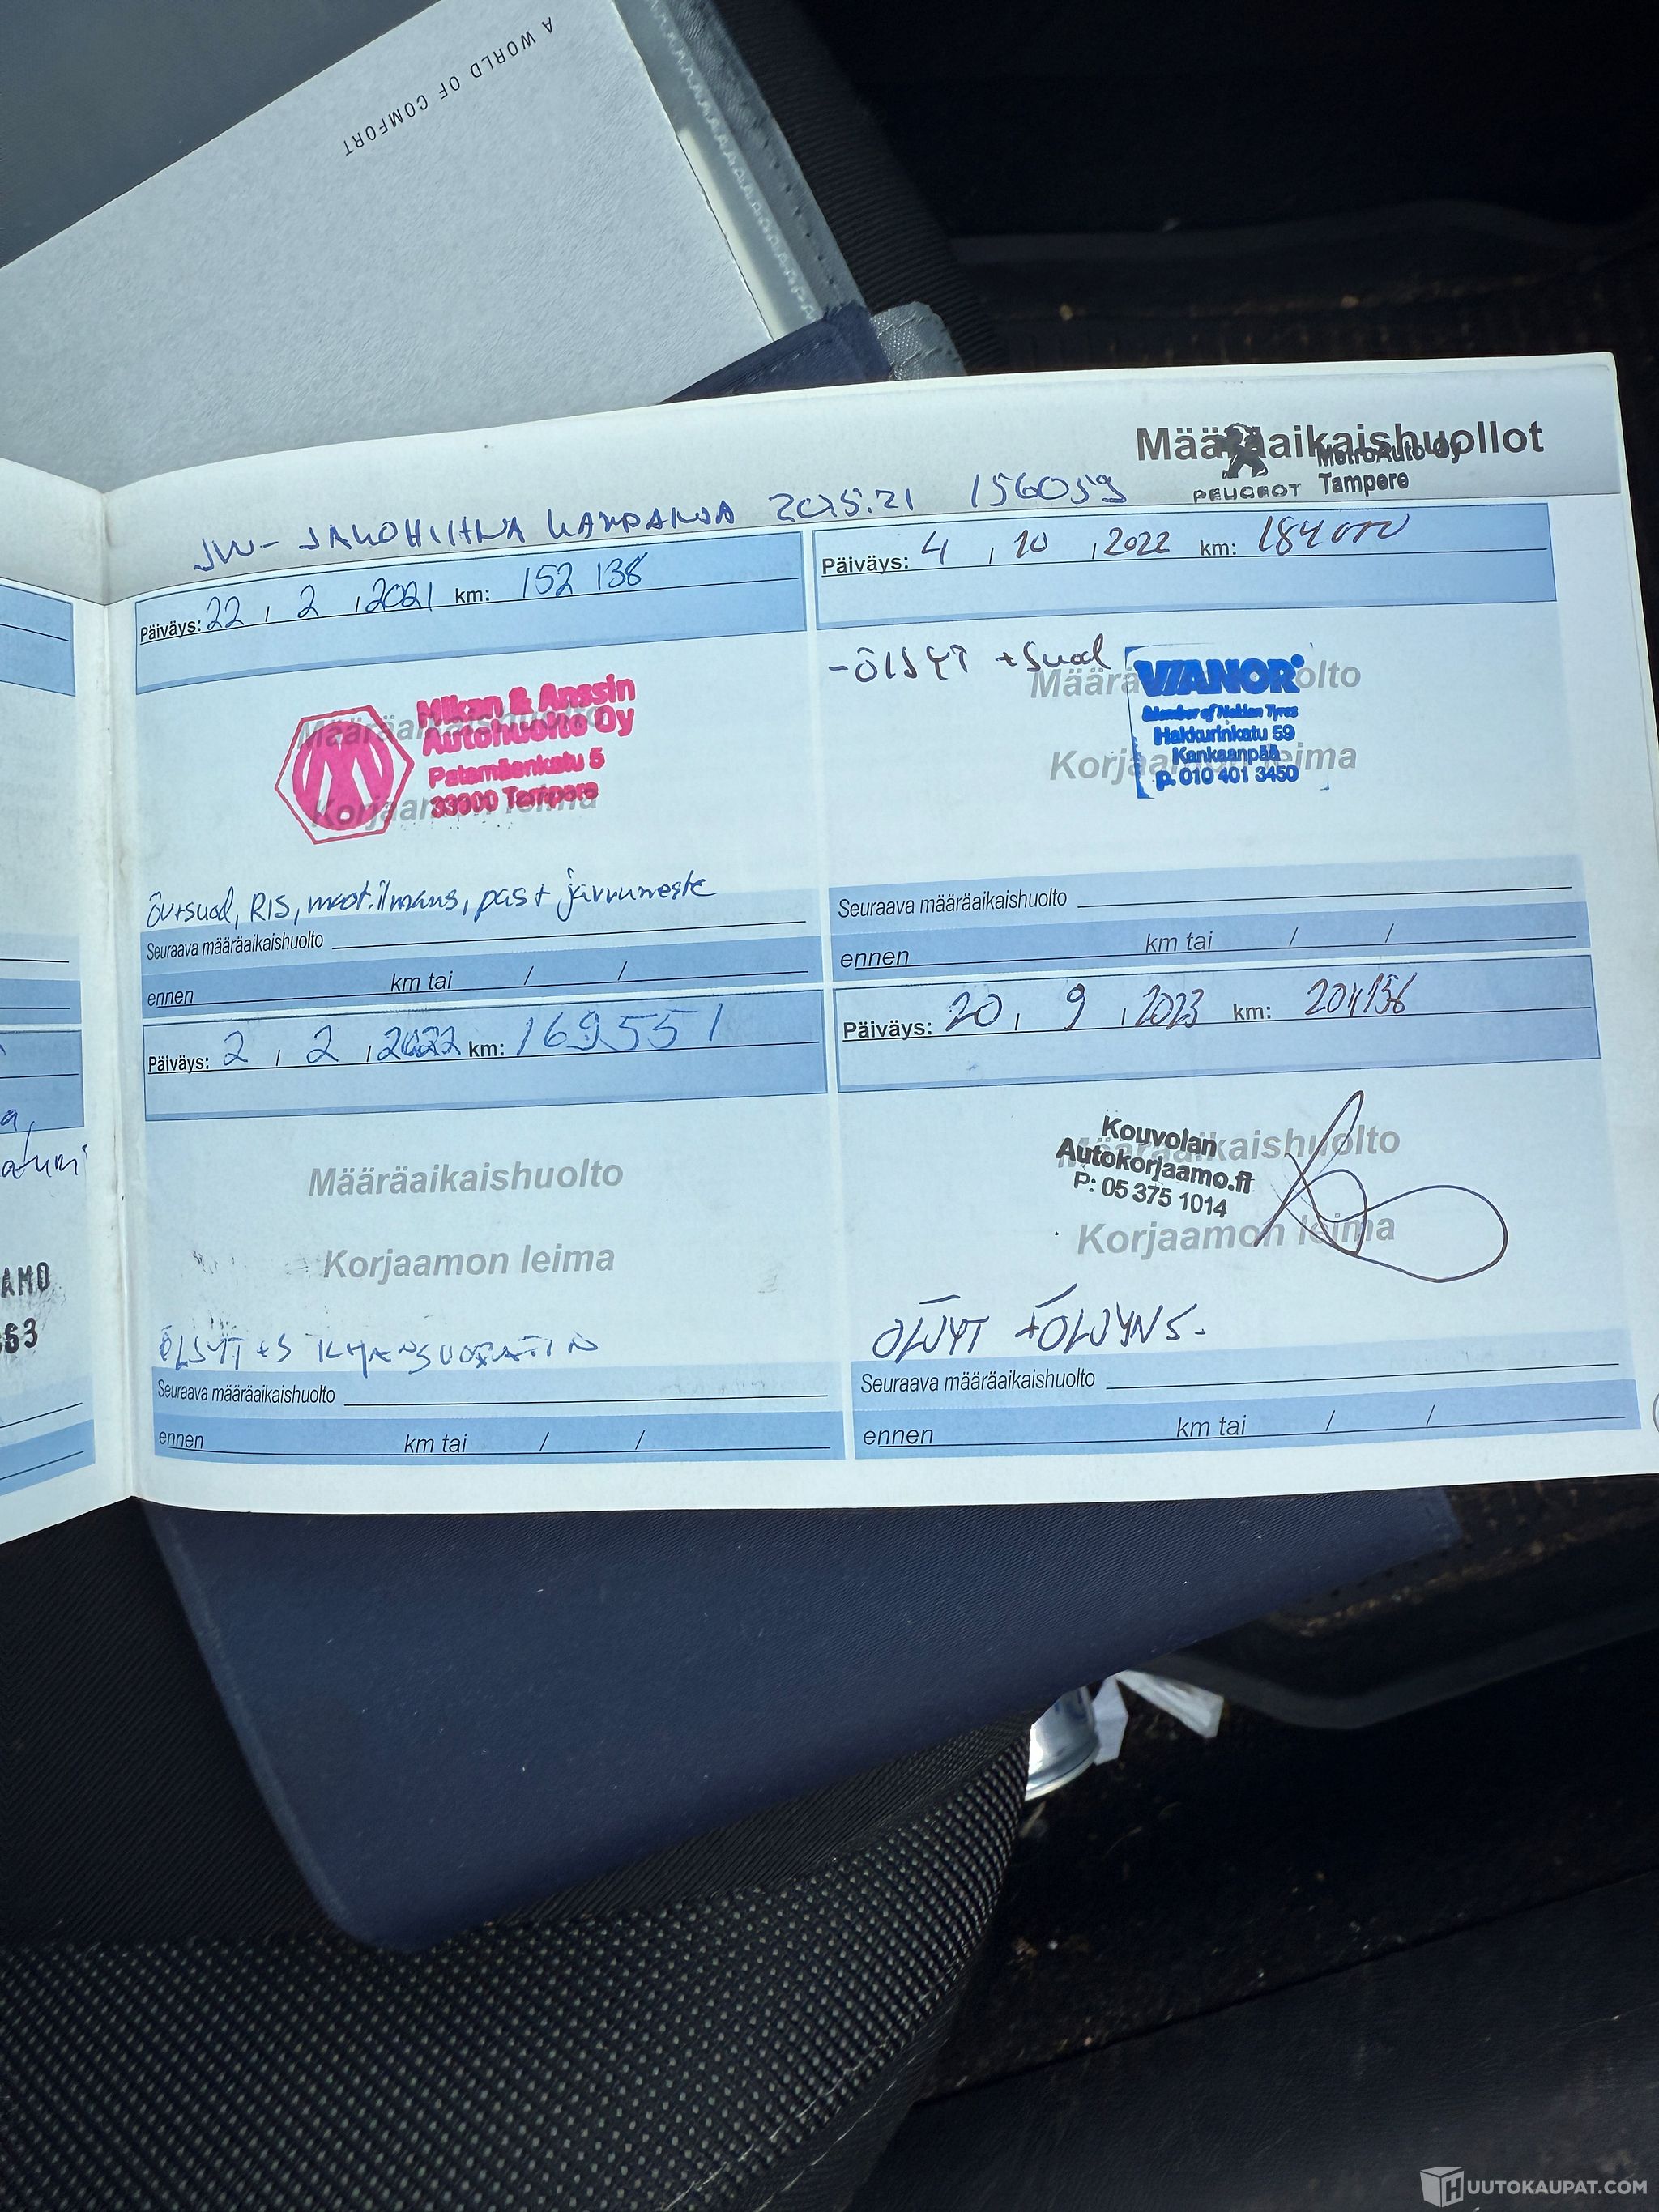 A WORLD OF COMFORT
Määräaikaishuollot
MetroAuto Oy
PEUGEOT Tampere
JW- JAKOHIHNA KAMPANJA 20.5.21 156059
Päiväys: 22 / 2 / 2021 km: 152 138
Määräaikaishuolto
Korjaamon leima
Mikan & Anssin
Autohuolto Oy
Patamäenkatu 5
33900 Tampere
öv+suod, RIS, moot.ilmans, pas+ jarruneste
Seuraava määräaikaishuolto
ennen km tai / /
Päiväys: 4 / 10 / 2022 km: 184000
-ÖLJYT +Suod
Määräaikaishuolto
Korjaamon leima
VIANOR
Member of Nokian Tyres
Hakkurinkatu 59
Kankaanpää
p. 010 401 3450
Seuraava määräaikaishuolto
ennen km tai / /
Päiväys: 2 / 2 / 2022 km: 169551
Määräaikaishuolto
Korjaamon leima
ÖLJYT +S ILMANSUODATIN
Seuraava määräaikaishuolto
ennen km tai / /
Päiväys: 20 / 9 / 2023 km: 204136
Määräaikaishuolto
Korjaamon leima
Kouvolan
Autokorjaamo.fi
P: 05 375 1014
ÖLJYT +ÖLJYNS.
Seuraava määräaikaishuolto
ennen km tai / /
a,
AMO
HUUTOKAUPAT.COM